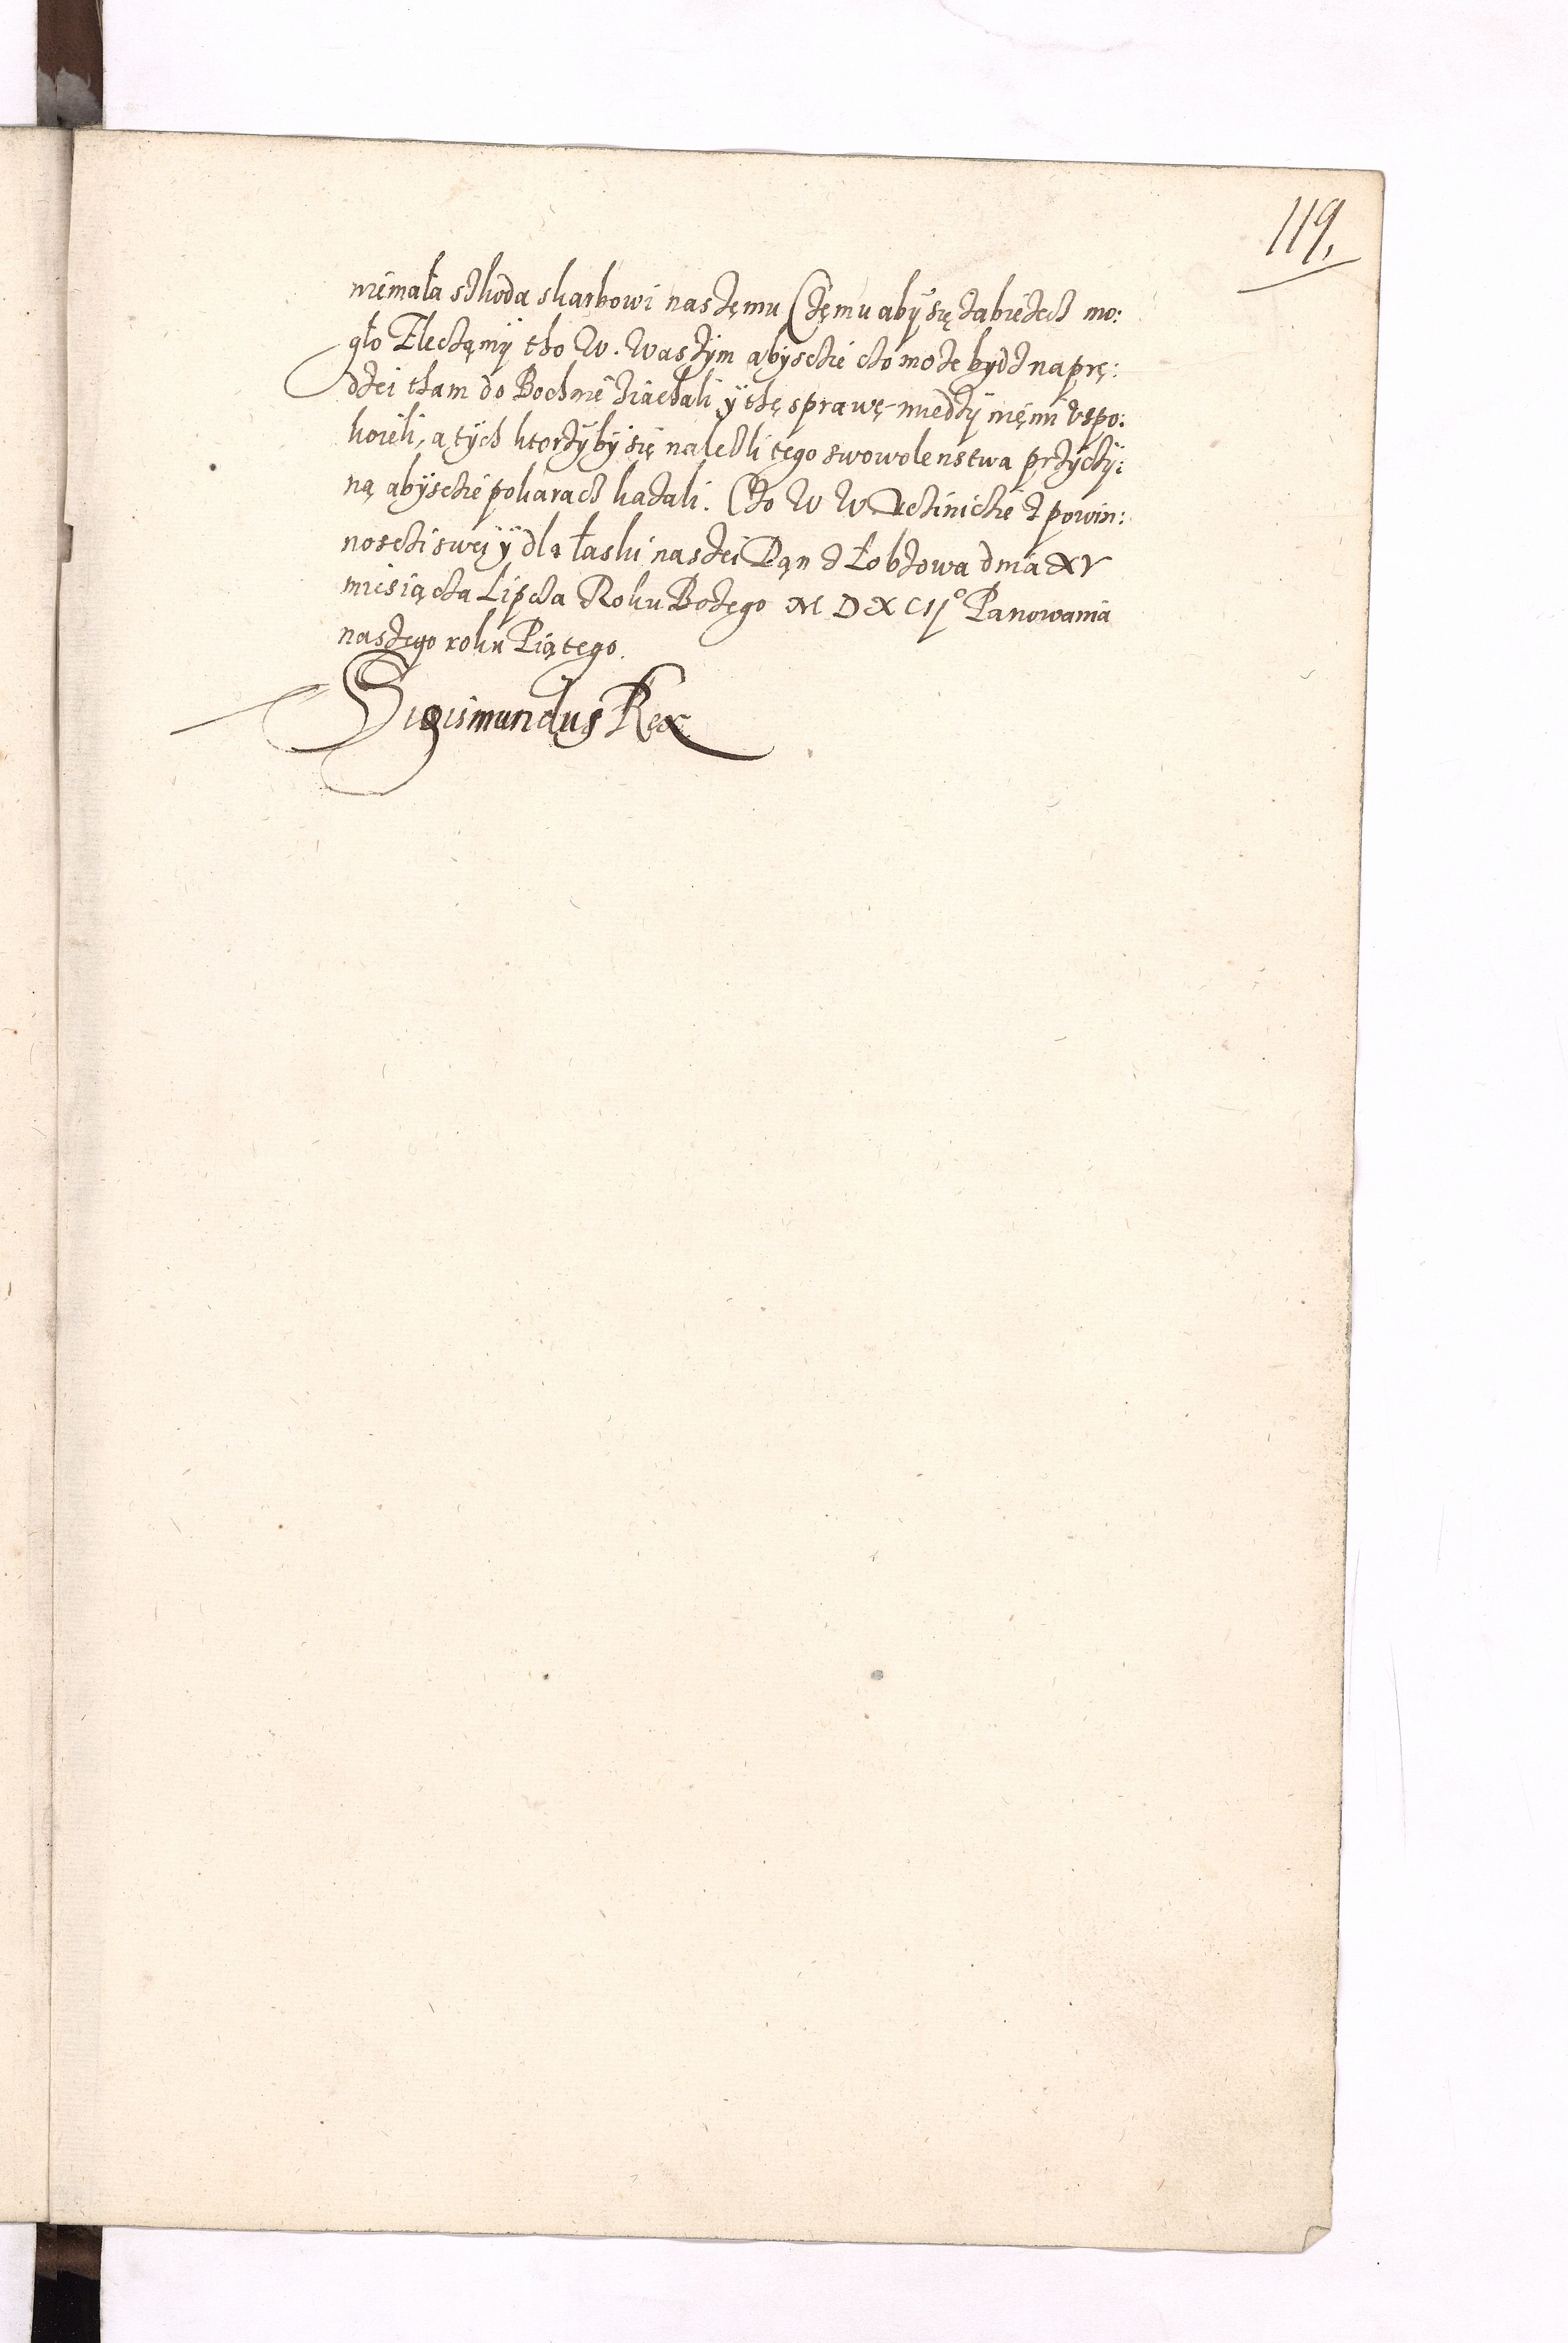 119.
niemała szkoda skarbowi naszęmu Częmu aby się zabieżech mo:
gło Zleczamÿ tho W. Waszÿm abÿsczie czo może bydz naprę:
dzei tham do Bochnie ziachali ÿ thę sprawę miedzÿ niemi vspo:
koieli, a tÿch ktorzÿbÿ się nalezli tego swowolenstwa przÿczÿ:
ną abÿsczie pokarach kazali. Czo W W vczinicie z powin:
nosczi swęÿ ÿ dla łaski naszei Dan z Łobzowa dnia XV
miesiącza Lipcza Roku Bożego M D XCIIº Panowania
naszego roku Piątego.
Sigismundus Rex